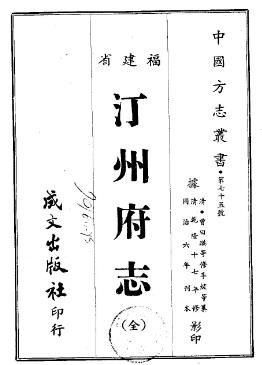 中國方志叢書•第七十五號
據
清•曾曰瑛等修李紱等纂
清乾隆十七年修
同治六年刊本
影印
福建省
汀州府志
(全)
成文出版社印行